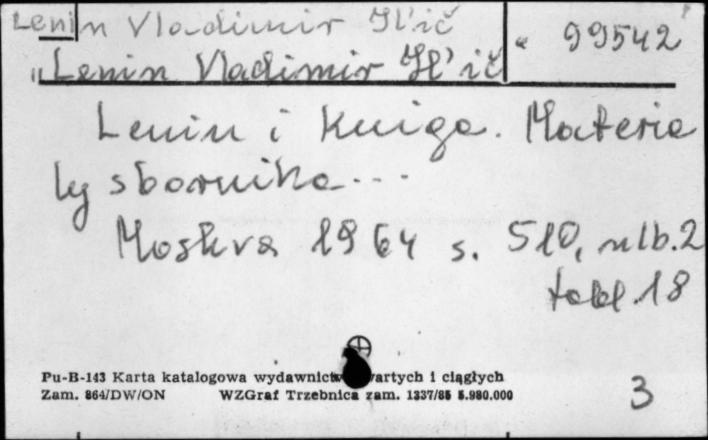 Lenin Vladimir Il'ič
"Lenin Vladimir Il'ič" 99542
Lenin i kniga. Materia
ly sbornika...
Moskva 1964 s. 510, nlb. 2
tabl. 18
Pu-B-143 Karta katalogowa wydawnictw zwartych i ciągłych
Zam. 864/DW/ON WZGraf Trzebnica zam. 1337/85 5.980.000
3